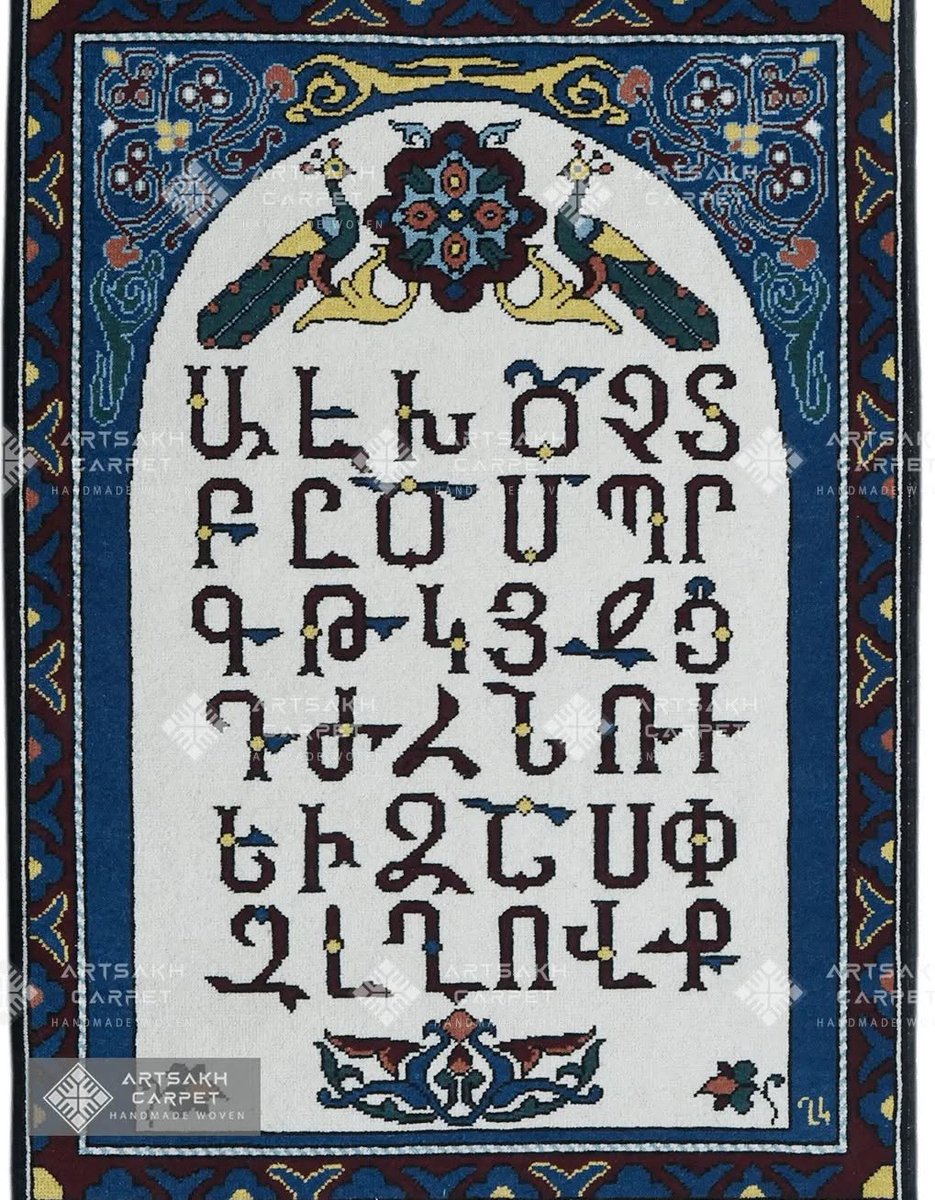 Ա Է Խ Ճ Չ Տ
Բ Ը Ծ Մ Պ Ր
Գ Թ Կ Յ Ջ Ց
Դ Ժ Հ Ն Ռ Ւ
Ե Ի Ձ Շ Ս Փ
Զ Լ Ղ Ո Վ Ք
ARTSAKH
CARPET
HANDMADE WOVEN